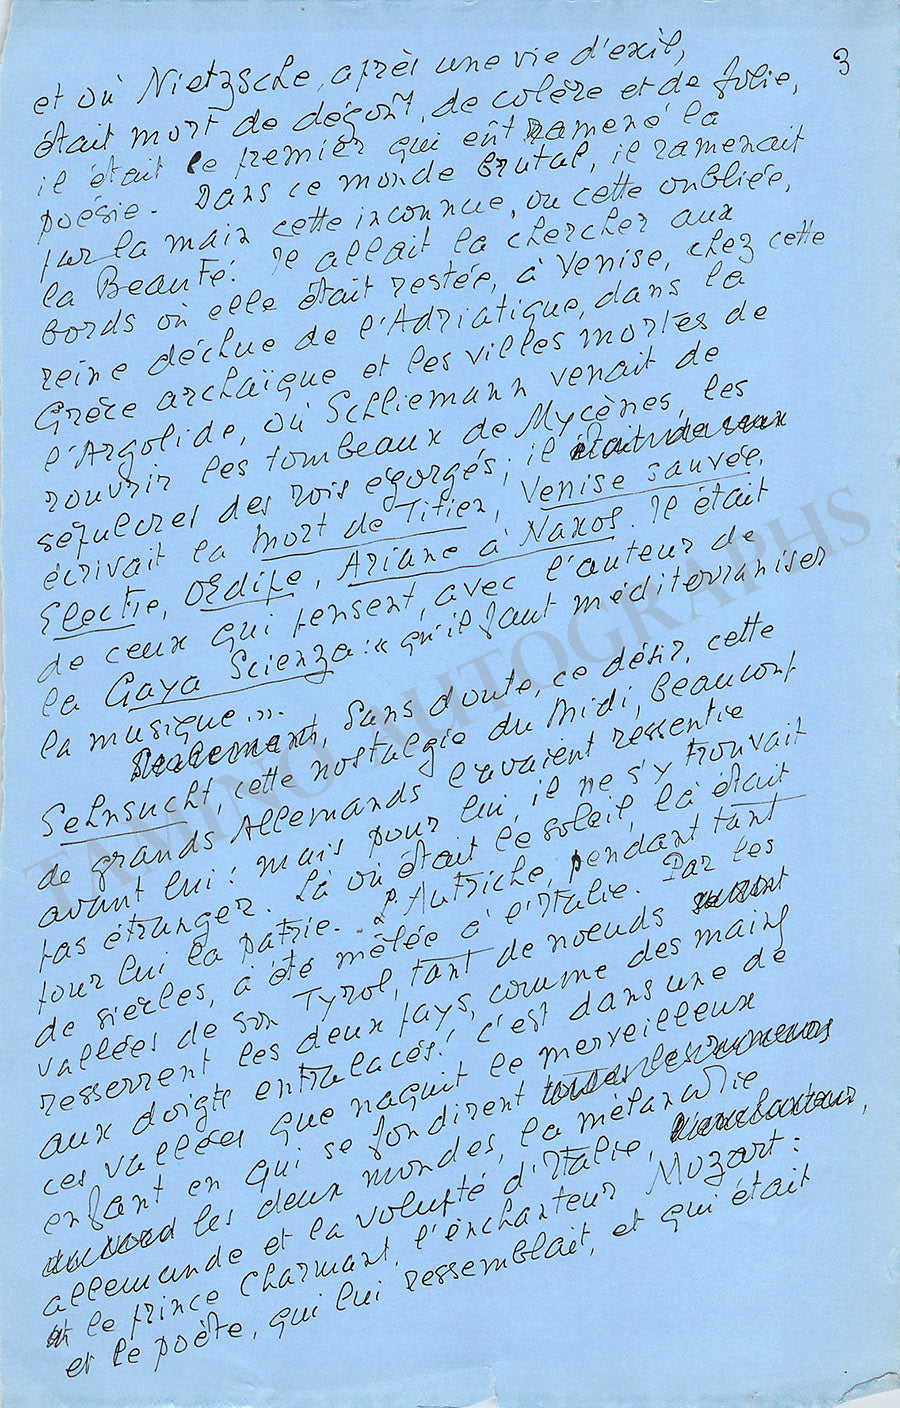 3
et où Nietzsche, après une vie d'exil,
était mort de dégoût, de colère et de folie,
il était le premier qui eût ramené la
poésie. Dans ce monde brutal, il ramenait
par la main cette inconnue, ou cette oubliée,
la Beauté. Il allait la chercher aux
bords où elle était restée, à Venise, chez cette
reine déchue de l'Adriatique, dans la
Grèce archaïque et les villes mortes de
l'Argolide, où Schliemann venait de
rouvrir les tombeaux de Mycènes, les
sépulcres des rois égorgés ; il
écrivait la Mort de Titien, Venise sauvée,
Electre, Oedipe, Ariane à Naxos. Il était
de ceux qui pensent, avec l'auteur de
la Gaya Scienza : « qu'il faut méditerraniser
la musique ».
Sans doute, ce désir, cette
Sehnsucht, cette nostalgie du Midi, beaucoup
de grands Allemands l'avaient ressentie
avant lui : mais pour lui, il ne s'y trouvait
pas étranger. Là où était le soleil, là était
pour lui la patrie. L'Autriche, pendant tant
de siècles, a été mêlée à l'Italie. Par les
vallées de son Tyrol, tant de noeuds
resserrent les deux pays, comme des mains
aux doigts entrelacés ! C'est dans une de
ces vallées que naquit le merveilleux
enfant en qui se fondirent
les deux mondes, la mélancolie
allemande et la volupté d'Italie,
le prince Charmant, l'enchanteur Mozart :
et le poète, qui lui ressemblait, et qui était
TAMINO AUTOGRAPHS